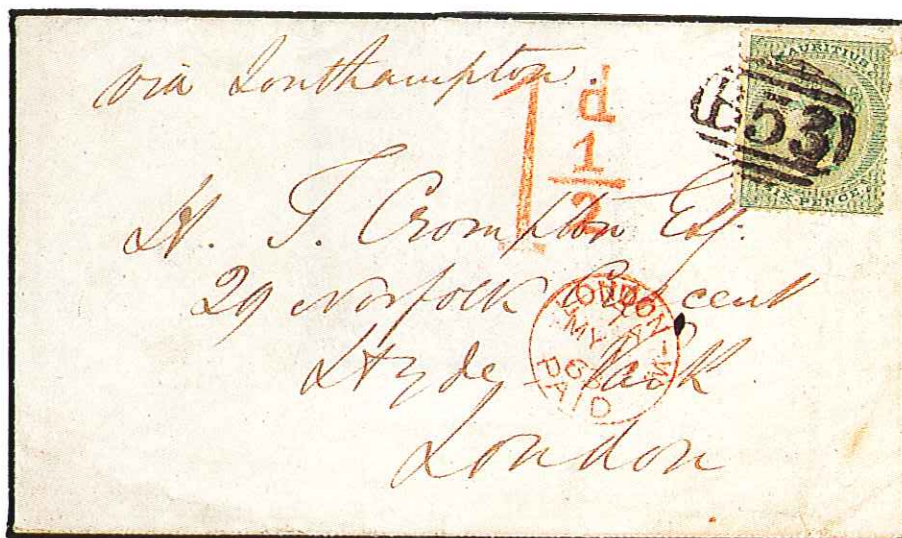 via Southampton.
1 d
1
2
MAURITIUS
B53
SIX PENCE
H. T. Crompton Esq:
29 Norfolk Crescent
Hyde Park
London
LONDON-W
MY
PAID